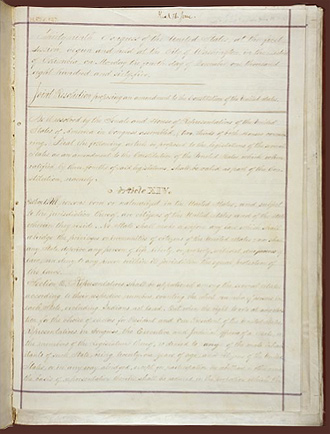 Thirty-ninth Congress of the United States, at the first
session, begun and held at the City of Washington, in the District
of Columbia, on Monday the fourth day of December, one thousand
eight hundred and sixty-five.
Joint Resolution proposing an amendment to the Constitution of the United States.
Be it resolved by the Senate and House of Representatives of the United
States of America in Congress assembled, two thirds of both Houses concur-
ring, That the following article be proposed to the legislatures of the several
States as an amendment to the Constitution of the United States, which, when
ratified by three fourths of said legislatures, shall be valid as part of the Con-
stitution, namely:
Article XIV.
Section 1. All persons born or naturalized in the United States, and subject
to the jurisdiction thereof, are citizens of the United States and of the State
wherein they reside. No State shall make or enforce any law which shall
abridge the privileges or immunities of citizens of the United States; nor shall
any State deprive any person of life, liberty, or property, without
nor deny to any person within its jurisdiction the equal protection of
the laws.
Section 2. Representatives shall be apportioned among the several States
according to their respective numbers, counting the whole number of persons in
each State, excluding Indians not taxed. But when the right to vote at
election for the choice of electors for President and Vice President of the United States,
Representatives in Congress, the Executive and Judicial officers of a State, or
the members of the Legislature thereof, is denied to any of the male inhabi-
tants of such State, being twenty-one years of age, and citizens of the United
States, or in any way abridged, except for participation in rebellion, or other crime,
the basis of representation therein shall be reduced in the proportion which the